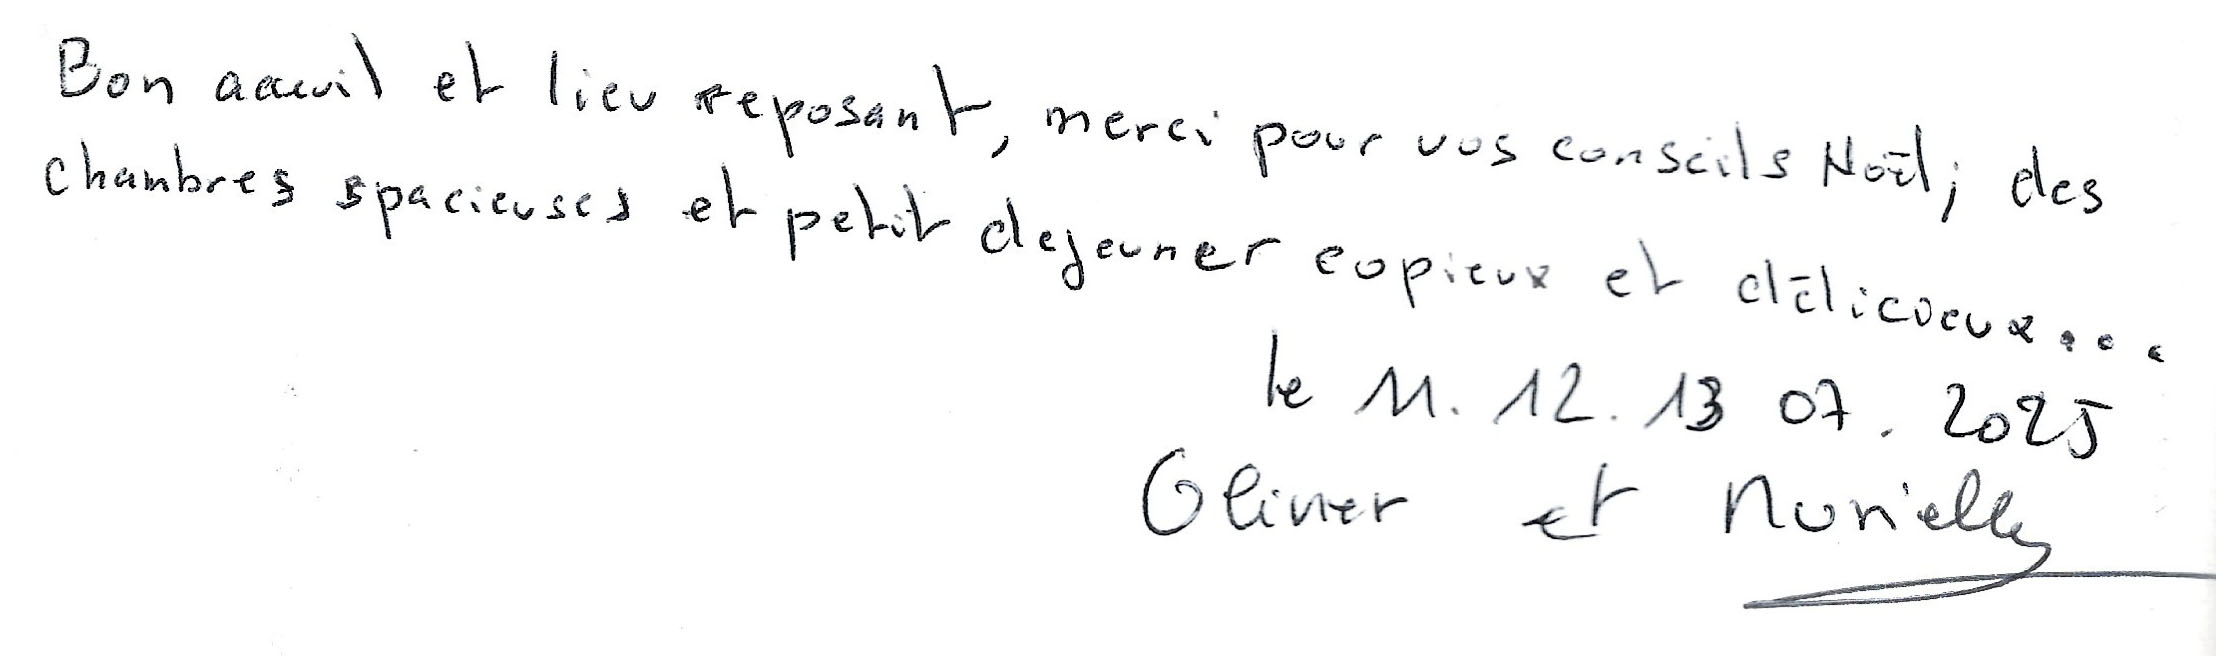 Bon accueil et lieu reposant, merci pour vos conseils Noël; des
chambres spacieuses et petit dejeuner copieux et délicoeux...
le 11. 12. 13 07. 2025
Olivier et Murielle